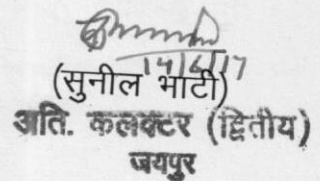 14/6/17
(सुनील भाटी)
अति. कलक्टर (द्वितीय)
जयपुर